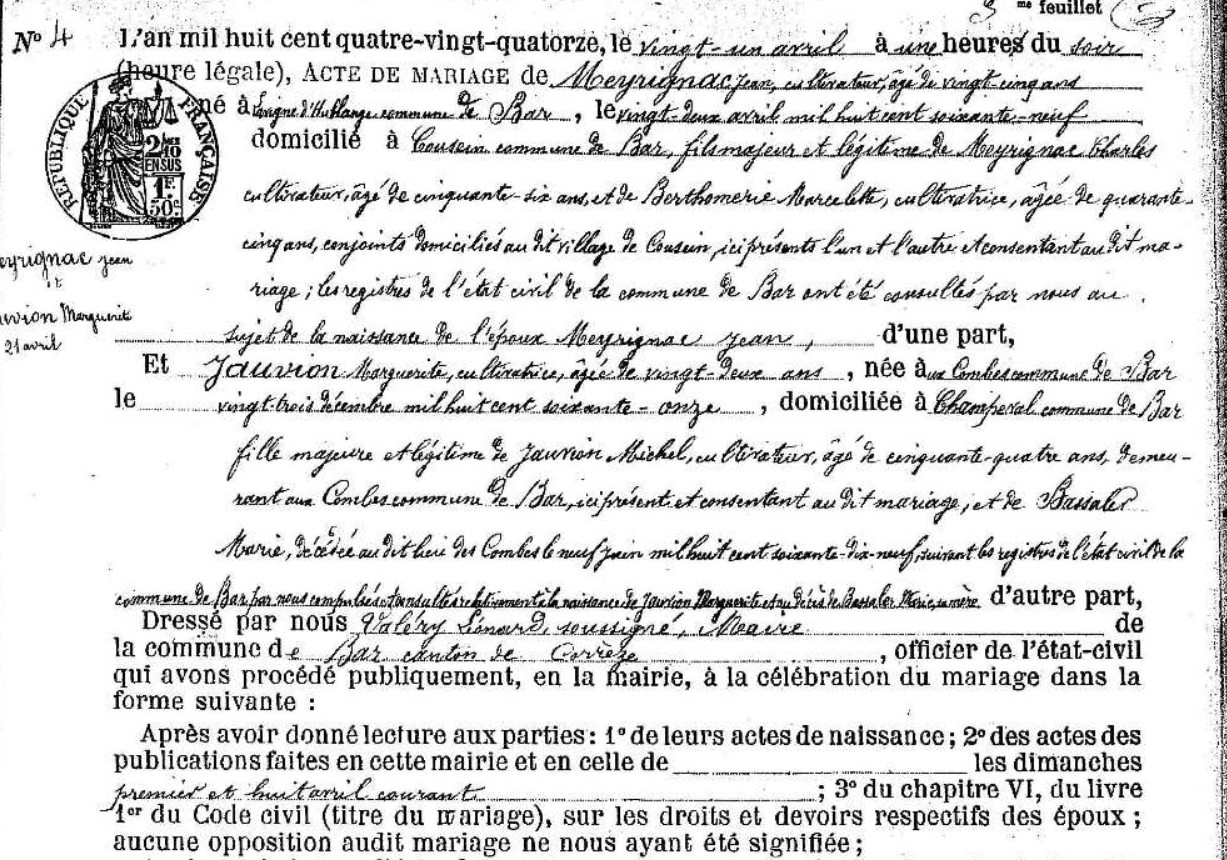 3 me feuillet
No 4 L'an mil huit cent quatre-vingt-quatorze, le vingt-un avril à une heures du soir
(heure légale), ACTE DE MARIAGE de Meyrignac Jean, cultivateur, âgé de vingt-cinq ans
né à d'Hublange commune de Bar, le vingt-deux avril mil huit cent soixante-neuf
domicilié à Cousein commune de Bar, fils majeur et légitime de Meyrignac Charles
cultivateur, âgé de cinquante-six ans, et de Berthomerie Marcelette, cultivatrice, âgée de quarante-
cinq ans, conjoints domiciliés au dit village de Cousein, ici présents l'un et l'autre et consentant au dit ma-
riage; les registres de l'état civil de la commune de Bar ont été consultés par nous au
sujet de la naissance de l'époux Meyrignac Jean, d'une part,
Et Jauvion Marguerite, cultivatrice, âgée de vingt-deux ans, née aux Combes commune de Bar
le vingt-trois décembre mil huit cent soixante-onze, domiciliée à Champeval commune de Bar
fille majeure et légitime de Jauvion Michel, cultivateur, âgé de cinquante-quatre ans, demeu-
rant aux Combes commune de Bar, ici présent et consentant au dit mariage, et de Bassaler
Marie, décédée au dit lieu des Combes le neuf juin mil huit cent soixante-dix-neuf, suivant les registres de l'état civil de la
commune de Bar par nous compulsés et consultés relativement à la naissance de Jauvion Marguerite et au décès de Bassaler Marie, sa mère, d'autre part,
Dressé par nous Valéry Liénard, soussigné, Maire de
la commune de Bar canton de Corrèze, officier de l'état-civil
qui avons procédé publiquement, en la mairie, à la célébration du mariage dans la
forme suivante :
Après avoir donné lecture aux parties : 1° de leurs actes de naissance ; 2° des actes des
publications faites en cette mairie et en celle de les dimanches
premier et huit avril courant ; 3° du chapitre VI, du livre
1er du Code civil (titre du mariage), sur les droits et devoirs respectifs des époux ;
aucune opposition audit mariage ne nous ayant été signifiée ;
RÉPUBLIQUE FRANÇAISE
2/10
EN SUS
1F.
50c
eyrignac Jean
et
uvion Marguerite
21 avril